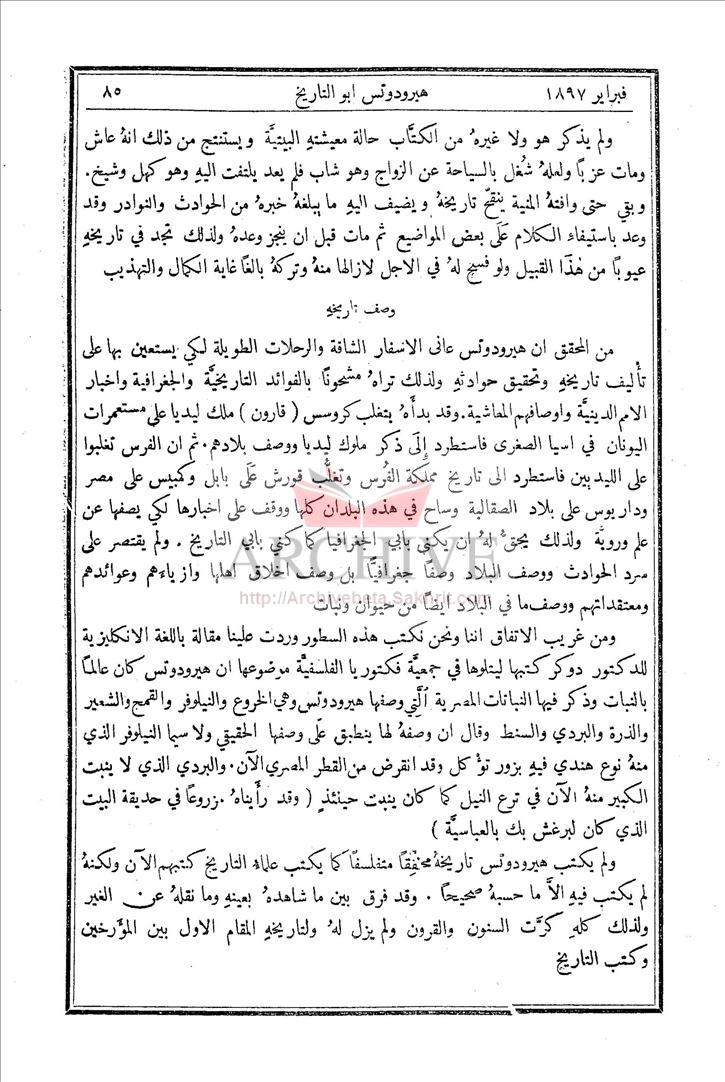 فبراير ١٨٩٧ هيرودوتس ابو التاريخ ٨٥
ولم يذكر هو ولا غيرهُ من الكتَّاب حالة معيشتهِ البيتيَّة ويستنتج من ذلك انهُ عاش
ومات عزبًا ولعلهُ شُغل بالسياحة عن الزواج وهو شاب فلم يعد يلتفت اليهِ وهو كهل وشيخ.
وبقي حتى وافتهُ المنية ينقّح تاريخهُ ويضيف اليهِ ما يبلغهُ خبرهُ من الحوادث والنوادر وقد
وعد باستيفاء الكلام عَلَى بعض المواضيع ثم مات قبل ان ينجز وعدهُ ولذلك تجد في تاريخهِ
عيوبًا من هٰذَا القبيل ولو فسح لهُ في الاجل لازالها منهُ وتركهُ بالغًا غاية الكمال والتهذيب
وصف تاريخهِ
من المحقق ان هيرودوتس عانى الاسفار الشاقة والرحلات الطويلة لكي يستعين بها على
تأليف تاريخهِ وتحقيق حوادثهِ ولذلك تراهُ مشحونًا بالفوائد التاريخيَّة والجغرافية واخبار
الامم الدينيَّة واوصافهم المعاشية. وقد بدأَهُ بتغلب كروسس (قارون) ملك ليديا على مستعمرات
اليونان في اسيا الصغرى فاستطرد إِلَى ذكر ملوك ليديا ووصف بلادهم. ثم ان الفرس تغلبوا
على الليديين فاستطرد الى تاريخ مملكة الفُرس وتغلُّب قورش عَلَى بابل وكمبيس على مصر
وداريوس على بلاد الصقالبة وساح في هذه البلدان كلها ووقف على اخبارها لكي يصفها عن
علم وروية ولذلك يحقُّ لهُ ان يكنى بابي الجغرافيا كما كني بابي التاريخ. ولم يقتصر على
سرد الحوادث ووصف البلاد وصفًا جغرافيًّا بل وصف اخلاق اهلها وازياءهم وعوائدهم
ومعتقداتهم ووصف ما في البلاد ايضًا من حيوان ونبات
ARCHIVE
http://Archivebeta.Sakhrit.com
ومن غريب الاتفاق اننا ونحن نكتب هذه السطور وردت علينا مقالة باللغة الانكليزية
للدكتور دوكر كتبها ليتلوها في جمعيَّة فكتوريا الفلسفيَّة موضوعها ان هيرودوتس كان عالمًا
بالنبات وذكر فيها النباتات المصرية ٱلَّتِي وصفها هيرودوتس وهي الخروع والنيلوفر والقمح والشعير
والذرة والبردي والسنط وقال ان وصفهُ لها ينطبق عَلَى وصفها الحقيقي ولا سيما النيلوفر الذي
منهُ نوع هندي فيهِ بزور تؤكل وقد انقرض من القطر المصري الآن. والبردي الذي لا ينبت
الكبير منهُ الآن في ترع النيل كما كان ينبت حينئذٍ (وقد رأَيناهُ .زروعًا في حديقة البيت
الذي كان لبرغش بك بالعباسيَّة)
ولم يكتب هيرودوتس تاريخهُ محققًا متفلسفًا كما يكتب علماء التاريخ كتبهم الآن ولكنهُ
لم يكتب فيهِ الاَّ ما حسبهُ صحيحًا. وقد فرق بين ما شاهدهُ بعينهِ وما نقلهُ عن الغير
ولذلك كلهِ كرَّت السنون والقرون ولم يزل لهُ ولتاريخهِ المقام الاول بين المؤَرخين
وكتب التاريخ